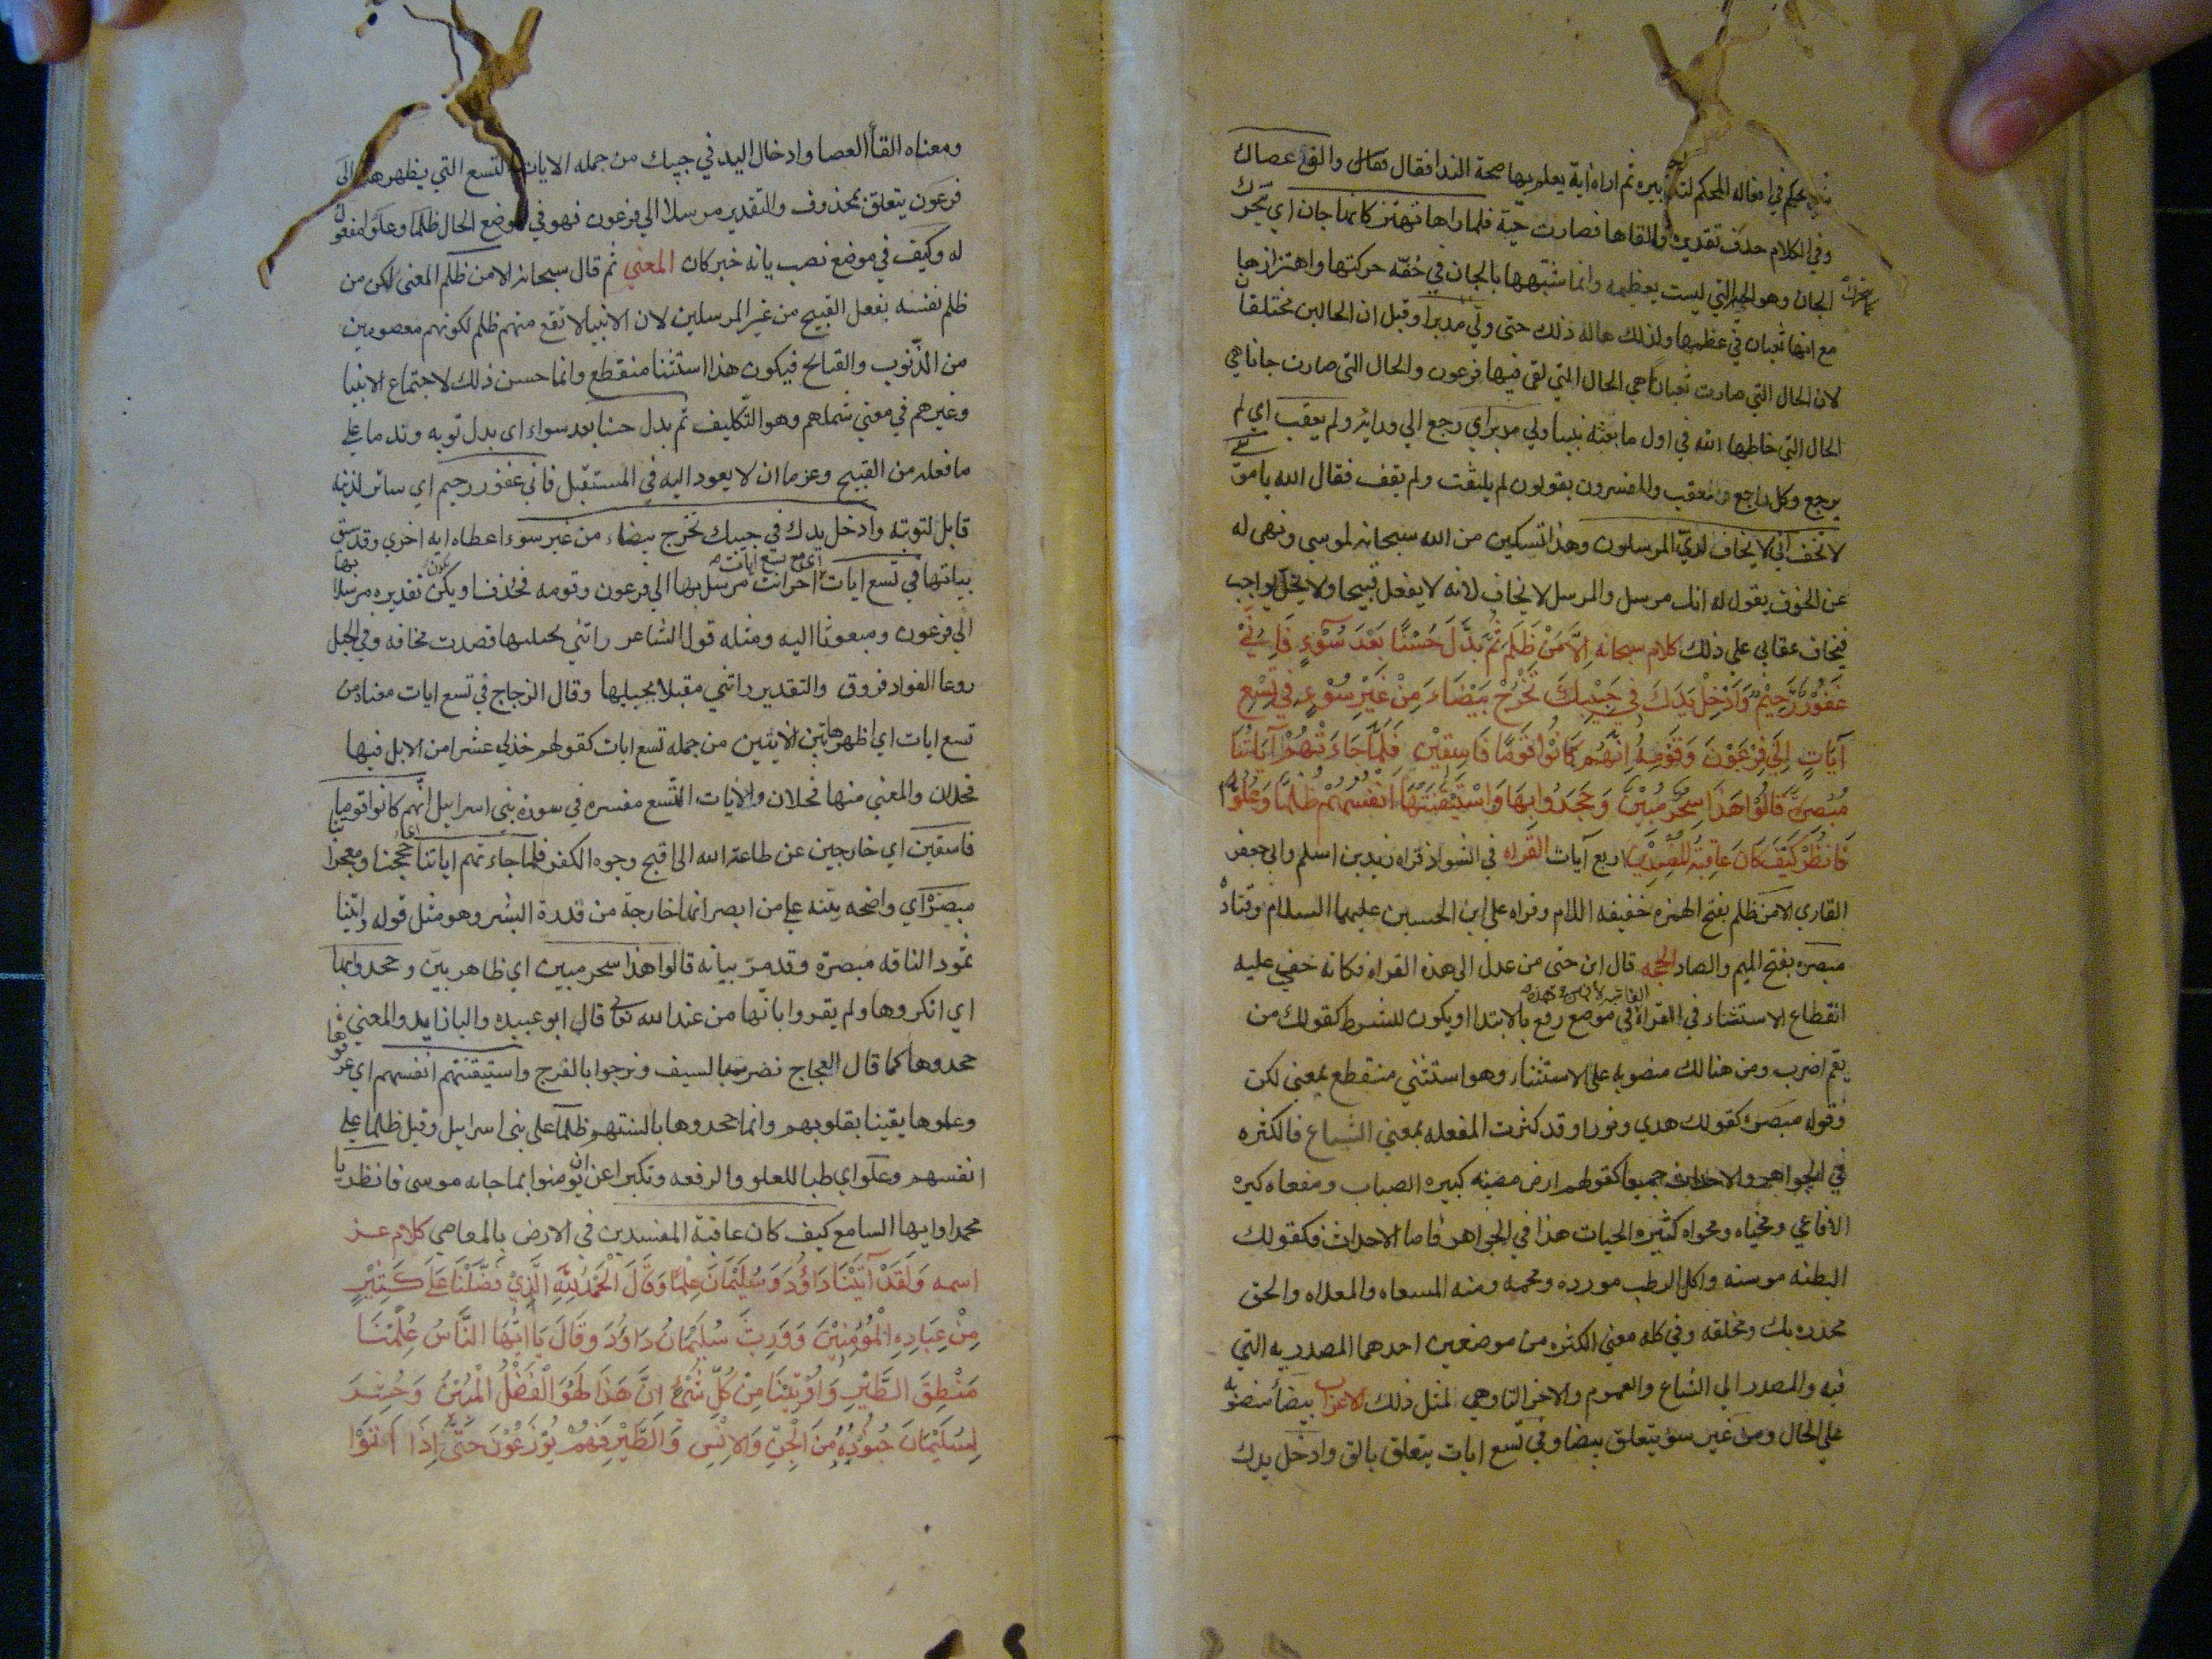 يحكم في افعاله المحكم لتدابيره ثم اراه اية يعلم بها صحة الندا فقال فقال والق عصاك
وفي الكلام حذف تقديره فالقاها فصارت حيّة فلما راها تهتز كانها جان اي تتحرك
كما يتحرك
الجان وهو الحية التي ليست بعظيمه وانما شبّهها بالجان في خفّه حركتها واهتزازها
مع انها ثعبان في عظمها ولذلك هاله ذلك حتى ولّي مدبرا وقيل ان الحالين مختلفان
لان الحال التي صارت ثعبانا هي الحال التي لقى فيها فرعون والحال التي صارت جانا هي
الحال التي خاطبها الله في اول ما بعثه نبيا ولي مدبرا اي رجع الي ورائه ولم يعقب اي لم
يرجع وكل راجع معقب والمفسرون يقولون لم يلتفت ولم يقف فقال الله يا موسى
لا تخف اني لا يخاف لديّ المرسلون وهذا تسكين من الله سبحانه لموسي ونهى له
عن الخوف يقول له انك مرسل والمرسل لا يخاف لانه لا يفعل قبيحا ولا يخل بواجب
فيخاف عقابي علي ذلك كلام سبحانه اِلَّا مَنْ ظَلَمَ ثُمَّ بَدَّلَ حُسْنًا بَعْدَ سُوْٓءٍ فَاِنِّيْ
غَفُوْرٌ رَحِيْمٌ وَاَدْخِلْ يَدَكَ فِي جَيْبِكَ تَخْرُجْ بَيْضَاءَ مِنْ غَيْرِ سُوْءٍ فِي تِسْعِ
آيَاتٍ اِلَي فِرْعَوْنَ وَقَوْمِهِ اِنَّهُمْ كَانُوْا قَوْمًا فَاسِقِيْنَ فَلَمَّا جَاءَتْهُمْ آيَاتُنَا
مُبْصِرَةً قَالُوْا هَذَا سِحْرٌ مُبِيْنٌ وَجَحَدُوا بِهَا وَاسْتَيْقَنَتْهَا اَنْفُسُهُمْ ظُلْمًا وَعُلُوًّا
فَانْظُرْ كَيْفَ كَانَ عَاقِبَةُ المُفْسِدِيْنَ اربع آيات القراه في الشواذ قراه زيد بن اسلم وابي جعفر
القاري الا من ظلم بفتح الهمزه خفيفه اللام وقراه علي ابن الحسين عليهما السلام وقتادة
مبصره بفتح الميم والصاد الحجه قال ابن جنى من عدل الي هذه القراه فكانه خفي عليه
انقطاع الاستثناء في القراة في موضع رفع بالابتدا او يكون للشرط كقولك من
يقم اضرب ومن هنالك منصوبه على الاستثناء وهو استثنى منقطع بمعنى لكن
وقوله مبصرة كقولك هدي ونورا وقد كثرت المفعله بمعني الشياع فالكثره
في الجواهر والاحداث جميعا كقولهم ارض مضبه كبيره الضباب ومفعاه كيره
الافاعي ومحياه ومحواه كثيره الحيات هذا في الجواهر فاما الاحداث فكقولك
البطنه موسنه واكل الرطب مورده ومحمه ومنه المسعاه والمعلاه والحق
مجدره بك ومخلقه وفي كله معني الكثره من موضعين احدهما المصدريه التي
فيه والمصدر الي الشياع والعموم والاخر التا وهي لمثل ذلك الاعراب بيضا منصوبه
علي الحال ومن غير سؤ يتعلق ببيضا وفي تسع ايات يتعلق بالق وادخل يدك
ومعناه القاأ العصا وادخال اليد في جيبك من جمله الايات التسع التي يظهرها الى
فرعون يتعلق بمحذوف والتقدير مرسلا الي فرعون فهو في موضع الحال ظلما وعلوا مفعول
له وكيف في موضع نصب بانه خبر كان المعني ثم قال سبحانه الا من ظلم المعنى لكن من
ظلم نفسه بفعل القبيح من غير المرسلين لان الانبيا لا تقع منهم ظلم لكونهم معصومين
من الذنوب والقبائح فيكون هذا استثنا منقطع وانما حسن ذلك لاجتماع الانبيا
وغيرهم في معني شملهم وهو التكليف ثم بدل حسنا بعد سواء اى بدل توبه وندما علي
ما فعله من القبيح وعزما ان لا يعود اليه في المستقبل فاني غفور رحيم اي ساتر لذنبه
قابل لتوبته وادخل يدك في جيبك تخرج بيضاء من غير سوء اعطاه ايه اخري وقد سبق
بيانها في تسع ايات اخرانت مرسل بها الي فرعون وقومه فحذف او يكون تقديره مرسلا بها
اي مع تسع ايات
الي فرعون ومبعوثا اليه ومثله قول الشاعر راتني بحبليها فصدت مخافه وفي الحبل
روعا الفواد فروق والتقدير راتني مقبلا بحبيلها وقال الزجاج في تسع ايات معناه من
تسع ايات اي اظهر هاتين الايتين من جمله تسع ايات كقولهم خذلي عشرا من الابل فيها
فحلان والمعني منها فحلان والايات التسع مفسره في سوره بني اسرائيل انهم كانوا قوما
فاسقين اي خارجين عن طاعه الله الى اقبح وجوه الكفر فلما جاءتهم اياتنا اي حججنا ومعجزاتنا
مبصرة اي واضحه بيّنه علي من ابصر انها خارجة من قدرة البشر وهو مثل قوله واتينا
ثمود الناقه مبصرة وقد مرّ بيانه قالوا هذا سحر مبين اي ظاهر بيّن وجحدوا بها
اي انكروها ولم يقروا بانها من عند الله تعالي قال ابو عبيده والبا زايد والمعني
جحدوها كما قال العجاج نضرب بالسيف ونرجوا بالفرج واستيقنتهم انفسهم اي عرفوها
وعلموها يقينا بقلوبهم وانما جحدوها بالسنتهم ظلما على بنى اسرايل وقيل ظلما علي
انفسهم وعلوا اي طبا للعلو والرفعه وتكبرا عن ان يومنوا بما جابه موسى فانظر يا
محمد او ايها السامع كيف كان عاقبة المفسدين في الارض بالمعاصي كلام عز
اسمه وَلَقَدْ آتَيْنَا دَاوُدَ وَسُلَيْمَانَ عِلْمًا وَقَالَا الْحَمْدُ لِلَّهِ الَّذِيْ فَضَّلَنَا عَلَى كَثِيْرٍ
مِنْ عِبَادِهِ الْمُؤْمِنِيْنَ وَوَرِثَ سُلَيْمَانُ دَاوُدَ وَقَالَ يَا اَيُّهَا النَّاسُ عُلِّمْنَا
مَنْطِقَ الطَّيْرِ وَاُوْتِيْنَا مِنْ كُلِّ شَيْءٍ اِنَّ هَذَا لَهُوَ الْفَضْلُ الْمُبِيْنُ وَحُشِرَ
لِسُلَيْمَانَ جُنُوْدُهُ مِنَ الْجِنِّ وَالاِنْسِ وَالطَّيْرِ فَهُمْ يُوْزَعُوْنَ حَتَّى اِذَا اَتَوْا